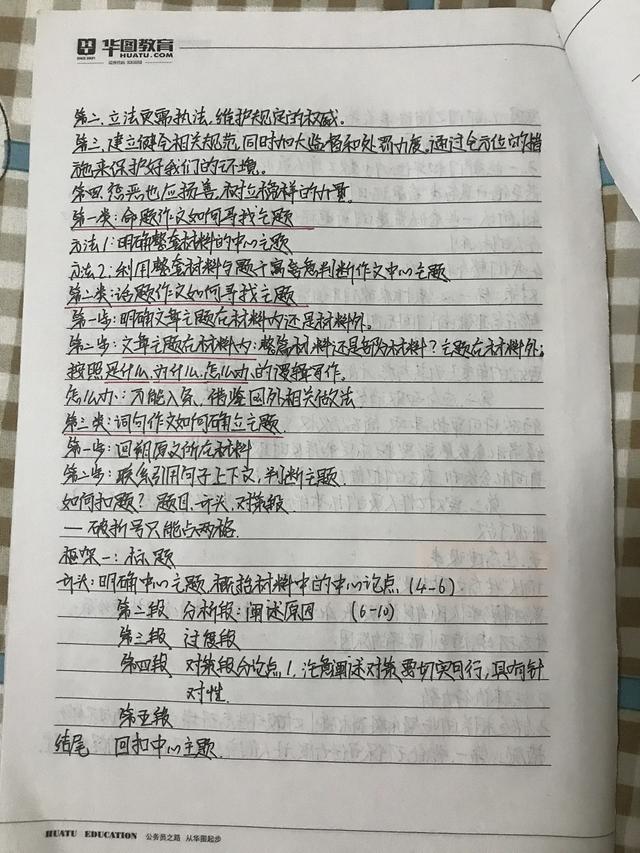 华图教育
HUATU.COM
第二.立法更需执法,维护规定的权威.
第三.建立健全相关规范,同时加大监督和处罚力度.通过全方位的措
施来保护好我们的环境.
第四.惩恶也应扬善,树立榜样的力量.
第一类:命题作文如何寻找主题
方法1:明确整套材料的中心主题
方法2:利用整套材料与题干寓意急判断作文中心主题
第二类:话题作文如何寻找主题
第一步:明确文章主题在材料内还是材料外.
第二步:文章主题在材料内:整篇材料还是部分材料?主题在材料外:
按照是什么.为什么.怎么办的逻辑写作.
怎么办:万能八条、借鉴国外相关做法
第三类:词句作文如何确立主题.
第一步:回朔原文所在材料
第二步:联系引用句子上下文,判断主题.
如何扣题?题目.开头.对策段.
—破折号只能占两格.
框架一:标题
开头:明确中心主题.概括材料中的中心论点(4-6)
第二段 分析段:阐述原因 (6-10)
第三段 过度段
第四段 对策段分论点1,注意阐述对策要切实可行,具有针
对性.
第五段
结尾 回扣中心主题.
HUATU EDUCATION 公务员之路 从华图起步